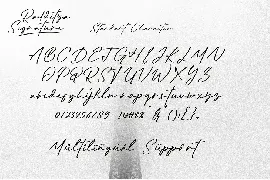 Raditya
Signature
Standart Character
ABCDEFGHIJKLMN
OPQRSTUVWXYZ
abcdefghijklmnopqrstuvwxyz
0123456789
Multilingual Support